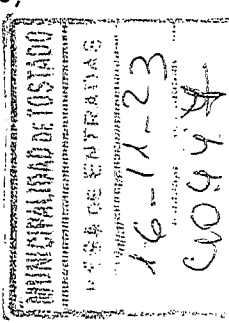 MUNICIPALIDAD DE TOSTADO
MESA DE ENTRADAS
16-11-23